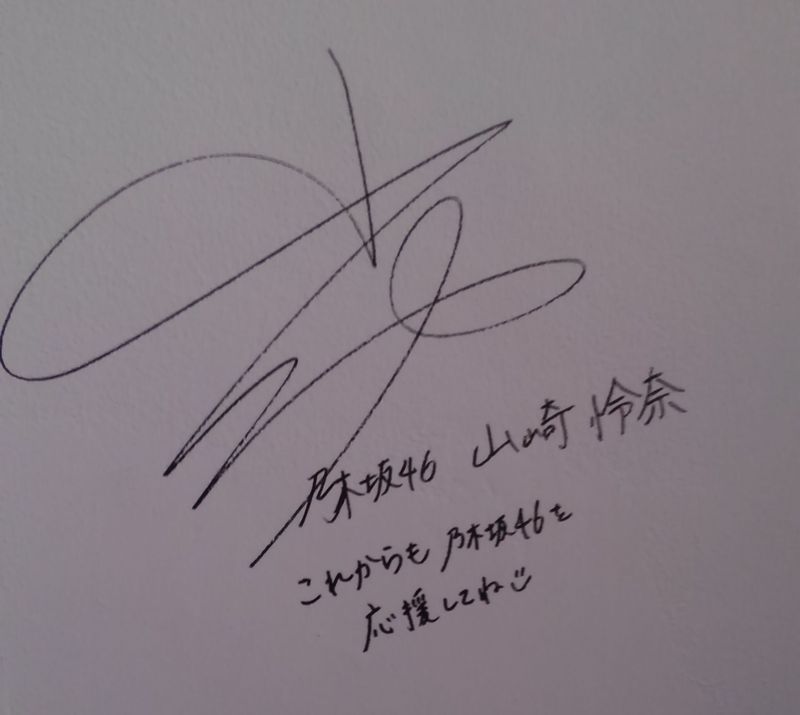 乃木坂46 山崎怜奈
これからも乃木坂46を
応援してね